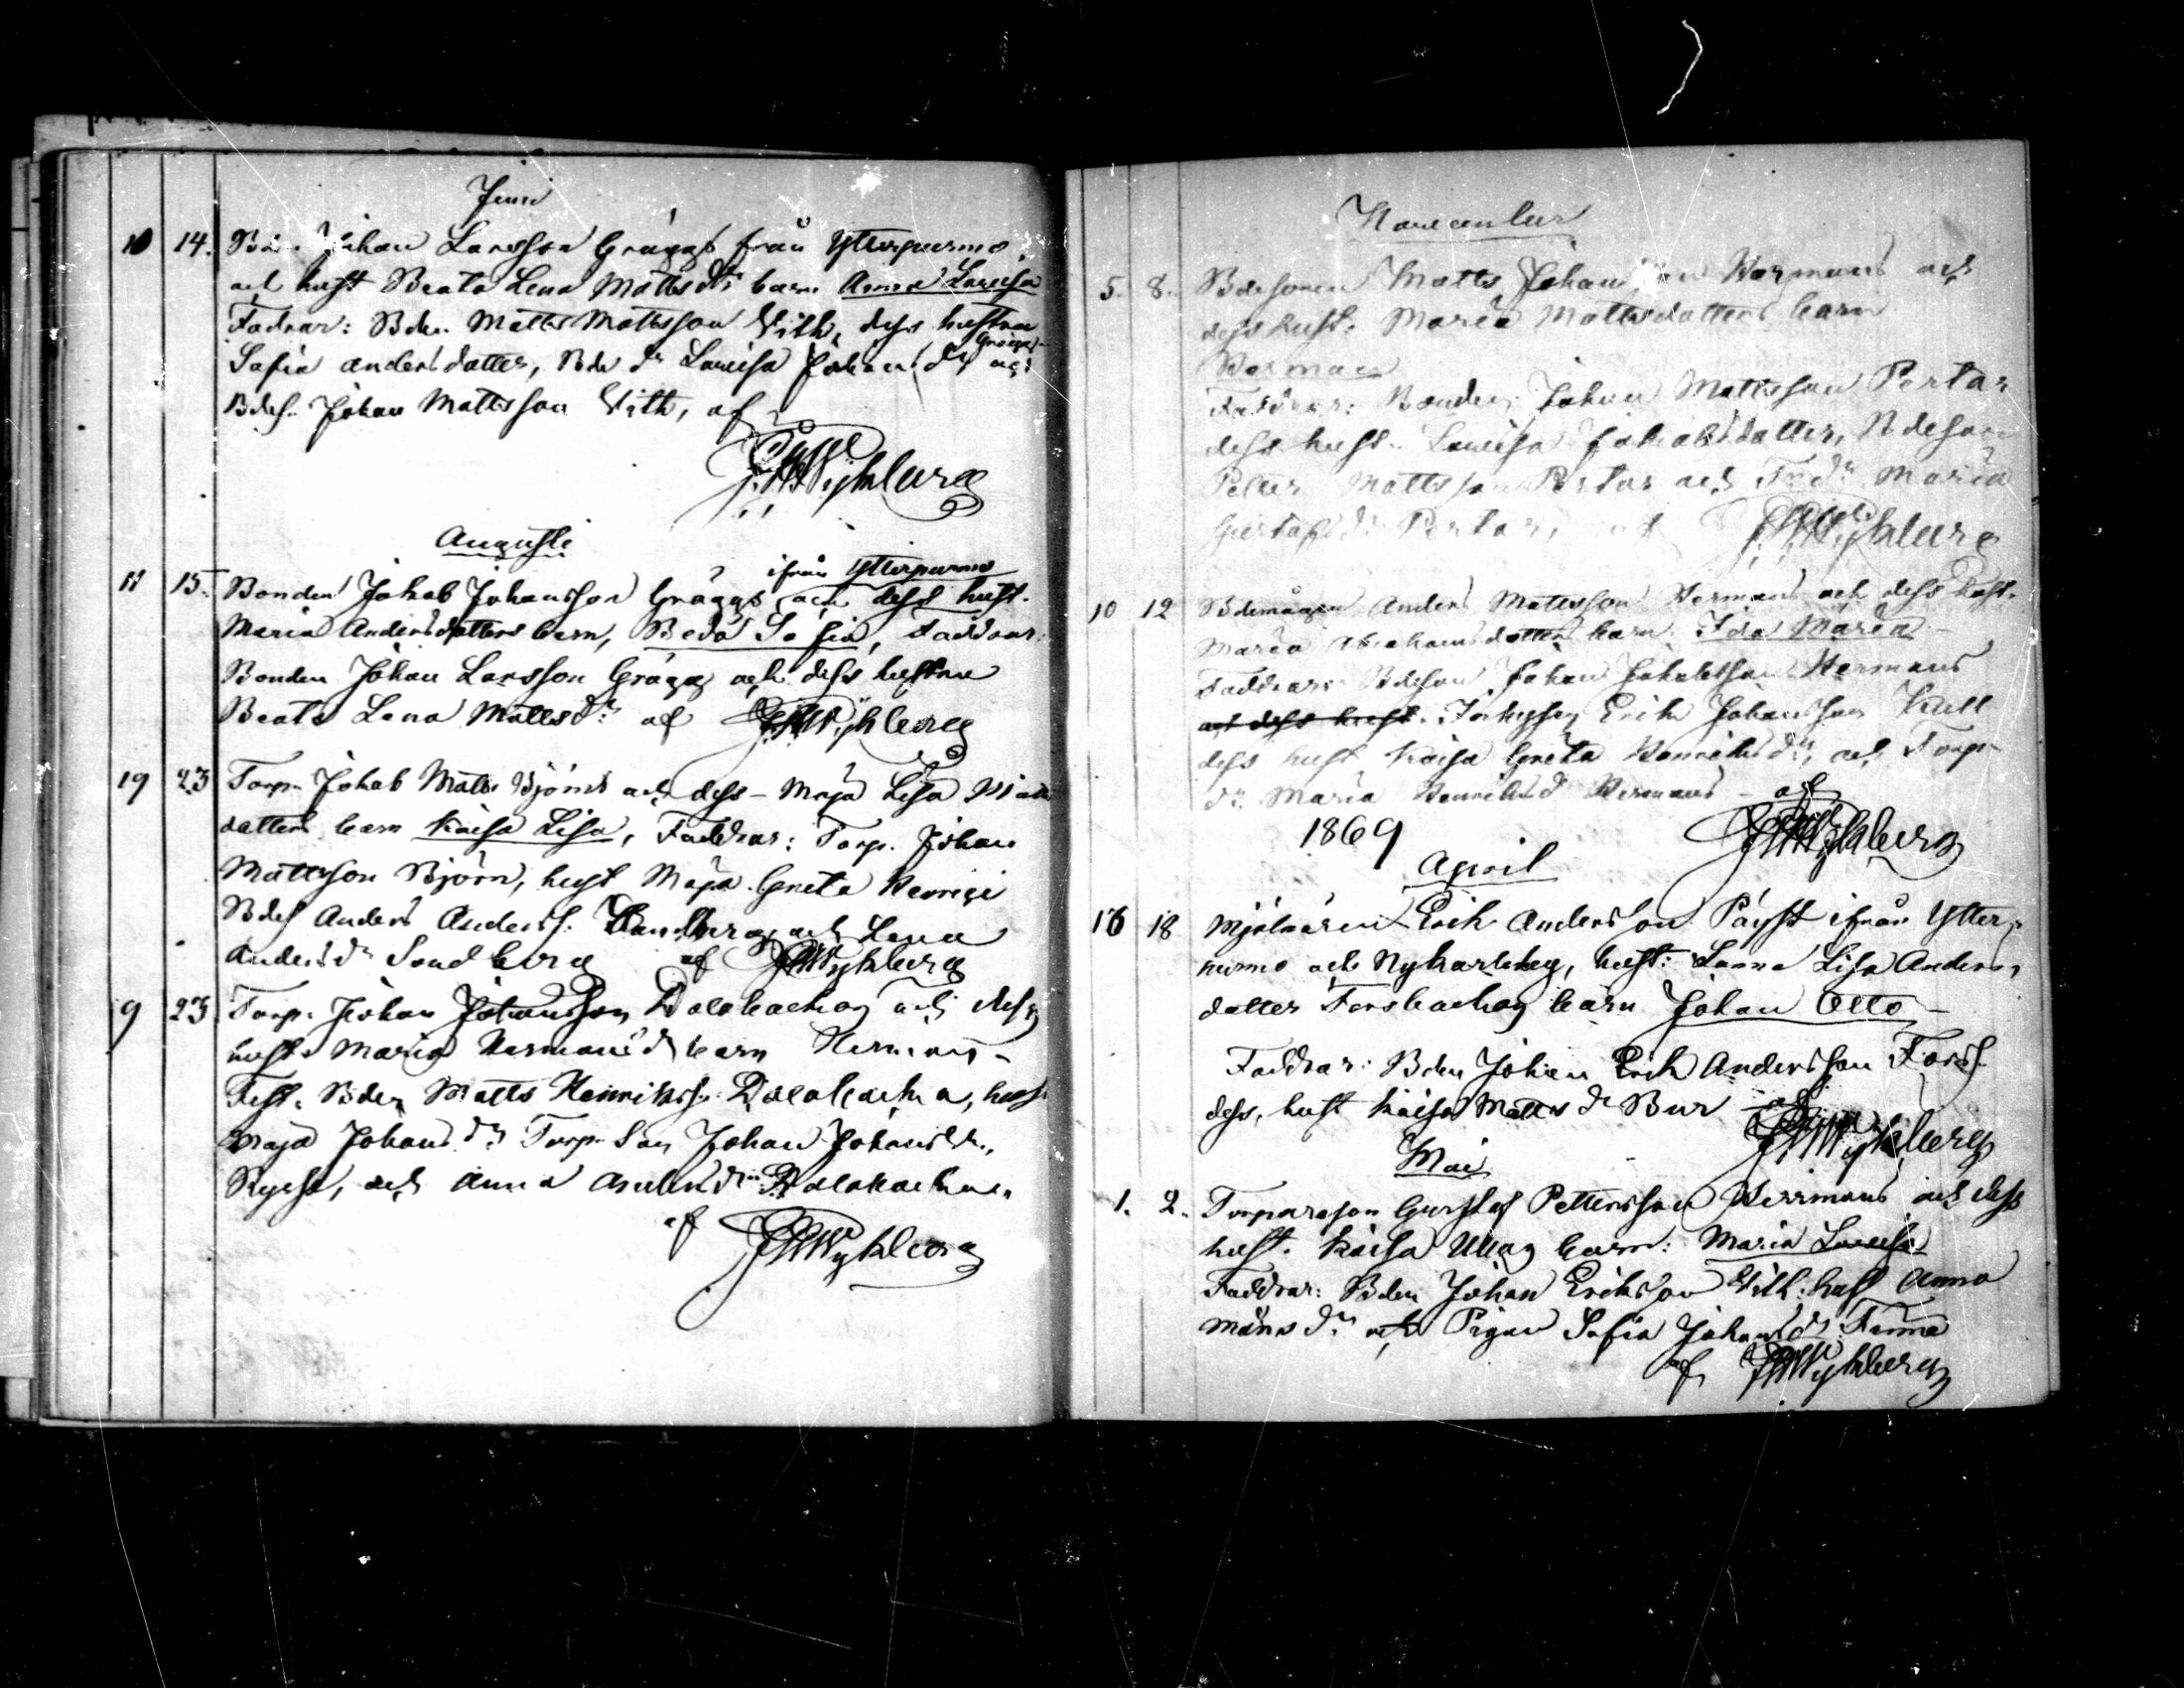 Juni
10 14. Johan Larsson Gräggs från Ytterpurmo
och hust Beata Lena Mattsdr barn Anna Lovisa
Fadrar: Bdn. Matts Mattsson Lith, dess hustru
Gräggs
Sofia andersdotter, Bde dr Lovisa Johansdr och
Bdes. Johan Mattsson Lith, af
JAWykberg
Augusti
ifrån Ytterpurmo
11 15. Bonden Jakob Johansson Gräggs och dess hust.
Maria Andersdotters barn, Beda Sofia, Faddrar:
Bonden Johan Larsson Gräggs och dess hustru
Beata Lena Mattsdr af JAWykberg
19 23 Torp. Jakob Matts Björns och dess - Maja Lisa
dotters barn Kaisa Lisa, Faddrar: Torp. Johan
Mattsson Björn, hust Maja Greta
Bdes Anders Anderss. Sandberg och Lena
Andersdr Sandberg af JAWykberg
9 23 Torp. Johan Johansson och dess
hust. Maria Hermansdr barn Herman -
Test. Bden Matts Henrikss. hust
Maja Johansdr Torp. Son Johan
och Anna Andersdr
af JAWykberg
November
5. 8. Bdesonen Matts Johansson Hermans och
dess hust. Maria Mattsdotters barn
Herman
Faddrar: Bonden Johan Mattsson Portar
dess hust. Lovisa Jakobsdotter, Bdeson
Petter Mattsson Portar och dr Maria
Gustafsdr Portar, af JAWykberg
10 12 Bdemågen Anders Mattsson Hermans och dess hust.
Maria Abrahamsdotters barn Ida Maria -
Faddrar: Bdeson Johan Jakobsson Hermans
och dess hust. Erik Johansson Kull
dess hust Kaisa Greta Henriksdr, och Torp-
dr Maria Henriksdr Hermans - af
1869 JAWykberg
April
16 18 Mjölnaren Erik Andersson Påyst ifrån Ytter-
purmo och Nykarleby, hust: Lisa Anders-
dotter Forsbacka barn Johan Otto -
Faddrar: Bden Johan Erik Andersson Forss.
dess, hust Kaisa Mattsdr Bur af
JAWykberg
Mai
1. 2. Torpareson Gustaf Pettersson Herrmans och dess
hust. Kaisa barn: Maria Lovisa
Faddrar: Bden Johan Eriksson Lith: hust Anna
Månsdr och Pigan Sofia Johansdr Finne
af JAWykberg